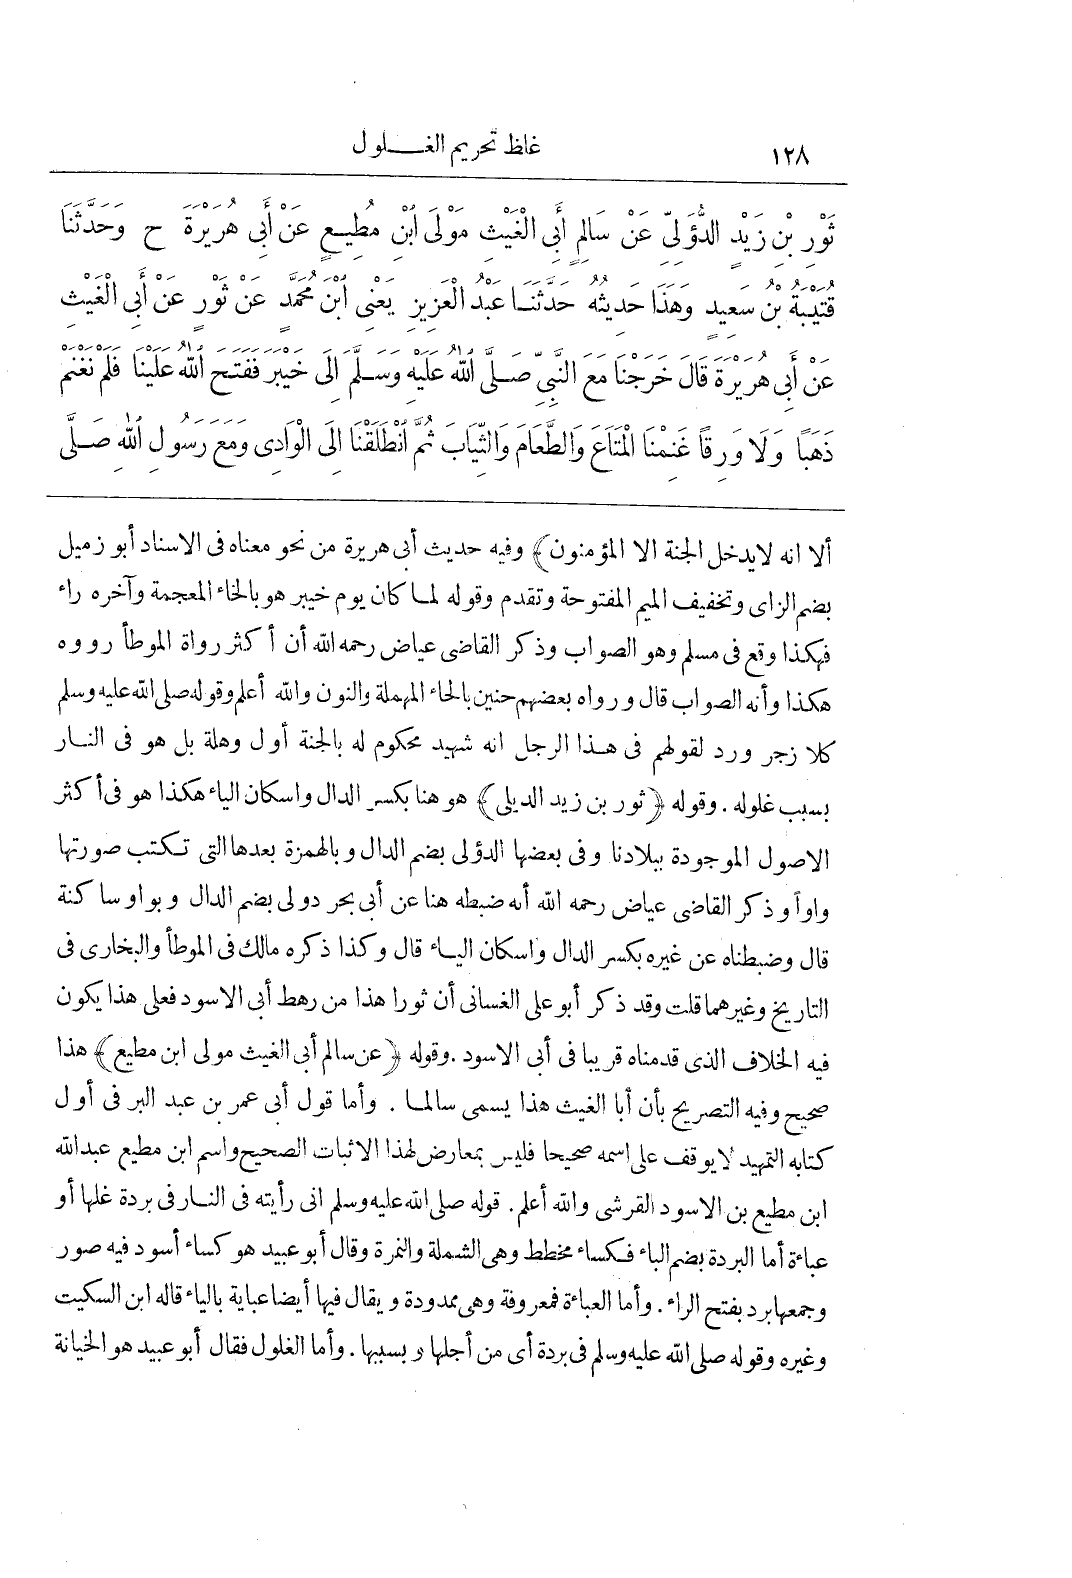 ١٢٨ غلظ تحريم الغلول
ثَوْرِ بْنِ زَيْدٍ الدُّؤَلِيِّ عَنْ سَالِمٍ أَبِي الْغَيْثِ مَوْلَى ابْنِ مُطِيعٍ عَنْ أَبِي هُرَيْرَةَ ح وَحَدَّثَنَا
قُتَيْبَةُ بْنُ سَعِيدٍ وَهَذَا حَدِيثُهُ حَدَّثَنَا عَبْدُ الْعَزِيزِ يَعْنِى ابْنَ مُحَمَّدٍ عَنْ ثَوْرٍ عَنْ أَبِى الْغَيْثِ
عَنْ أَبِى هُرَيْرَةَ قَالَ خَرَجْنَا مَعَ النَّبِىِّ صَلَّى اللهُ عَلَيْهِ وَسَلَّمَ إِلَى خَيْبَرَ فَفَتَحَ اللهُ عَلَيْنَا فَلَمْ نَغْنَمْ
ذَهَبًا وَلَا وَرِقًا غَنِمْنَا الْمَتَاعَ وَالطَّعَامَ وَالثِّيَابَ ثُمَّ انْطَلَقْنَا إِلَى الْوَادِى وَمَعَ رَسُولِ اللهِ صَلَّى
ألا انه لايدخل الجنة الا المؤمنون﴾ وفيه حديث أبى هريرة من نحو معناه فى الاسناد أبو زميل
بضم الزاى وتخفيف الميم المفتوحة وتقدم وقوله لما كان يوم خيبر هو بالخاء المعجمة وآخره راء
فهكذا وقع فى مسلم وهو الصواب وذكر القاضى عياض رحمه الله أن أكثر رواة الموطأ رووه
هكذا وأنه الصواب قال ورواه بعضهم حنين بالحاء المهملة والنون والله أعلم وقوله صلى الله عليه وسلم
كلا زجر ورد لقولهم فى هذا الرجل انه شهيد محكوم له بالجنة أول وهلة بل هو فى النار
بسبب غلوله . وقوله ﴿ثور بن زيد الديلى﴾ هو هنا بكسر الدال واسكان الياء هكذا هو فى أكثر
الاصول الموجودة ببلادنا وفى بعضها الدؤلى بضم الدال وبالهمزة بعدها التى تكتب صورتها
واوا وذكر القاضى عياض رحمه الله أنه ضبطه هنا عن أبى بحر دولى بضم الدال وبواو ساكنة
قال وضبطناه عن غيره بكسر الدال واسكان الياء قال وكذا ذكره مالك فى الموطأ والبخارى فى
التاريخ وغيرهما قلت وقد ذكر أبو على الغسانى أن ثورا هذا من رهط أبى الاسود فعلى هذا يكون
فيه الخلاف الذى قدمناه قريبا فى أبى الاسود . وقوله ﴿عن سالم أبى الغيث مولى ابن مطيع﴾ هذا
صحيح وفيه التصريح بأن أبا الغيث هذا يسمى سالما . وأما قول أبى عمر بن عبد البر فى أول
كتابه التمهيد لا يوقف على اسمه صحيحا فليس بمعارض لهذا الاثبات الصحيح واسم ابن مطيع عبدالله
ابن مطيع بن الاسود القرشى والله أعلم . قوله صلى الله عليه وسلم انى رأيته فى النار فى بردة غلها أو
عباءة أما البردة بضم الباء فكساء مخطط وهى الشملة والنمرة وقال أبو عبيد هو كساء أسود فيه صور
وجمعها برد بفتح الراء . وأما العباءة فمعروفة وهى ممدودة ويقال فيها أيضا عباية بالياء قاله ابن السكيت
وغيره وقوله صلى الله عليه وسلم فى بردة أى من أجلها وبسببها . وأما الغلول فقال أبو عبيد هو الخيانة